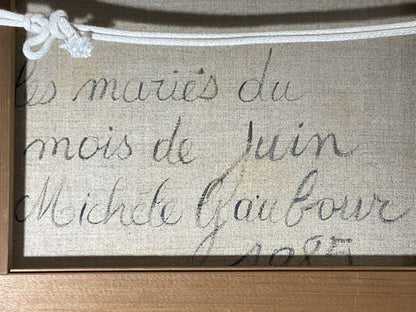 les mariés du
mois de Juin
Michèle Gaubour
1985